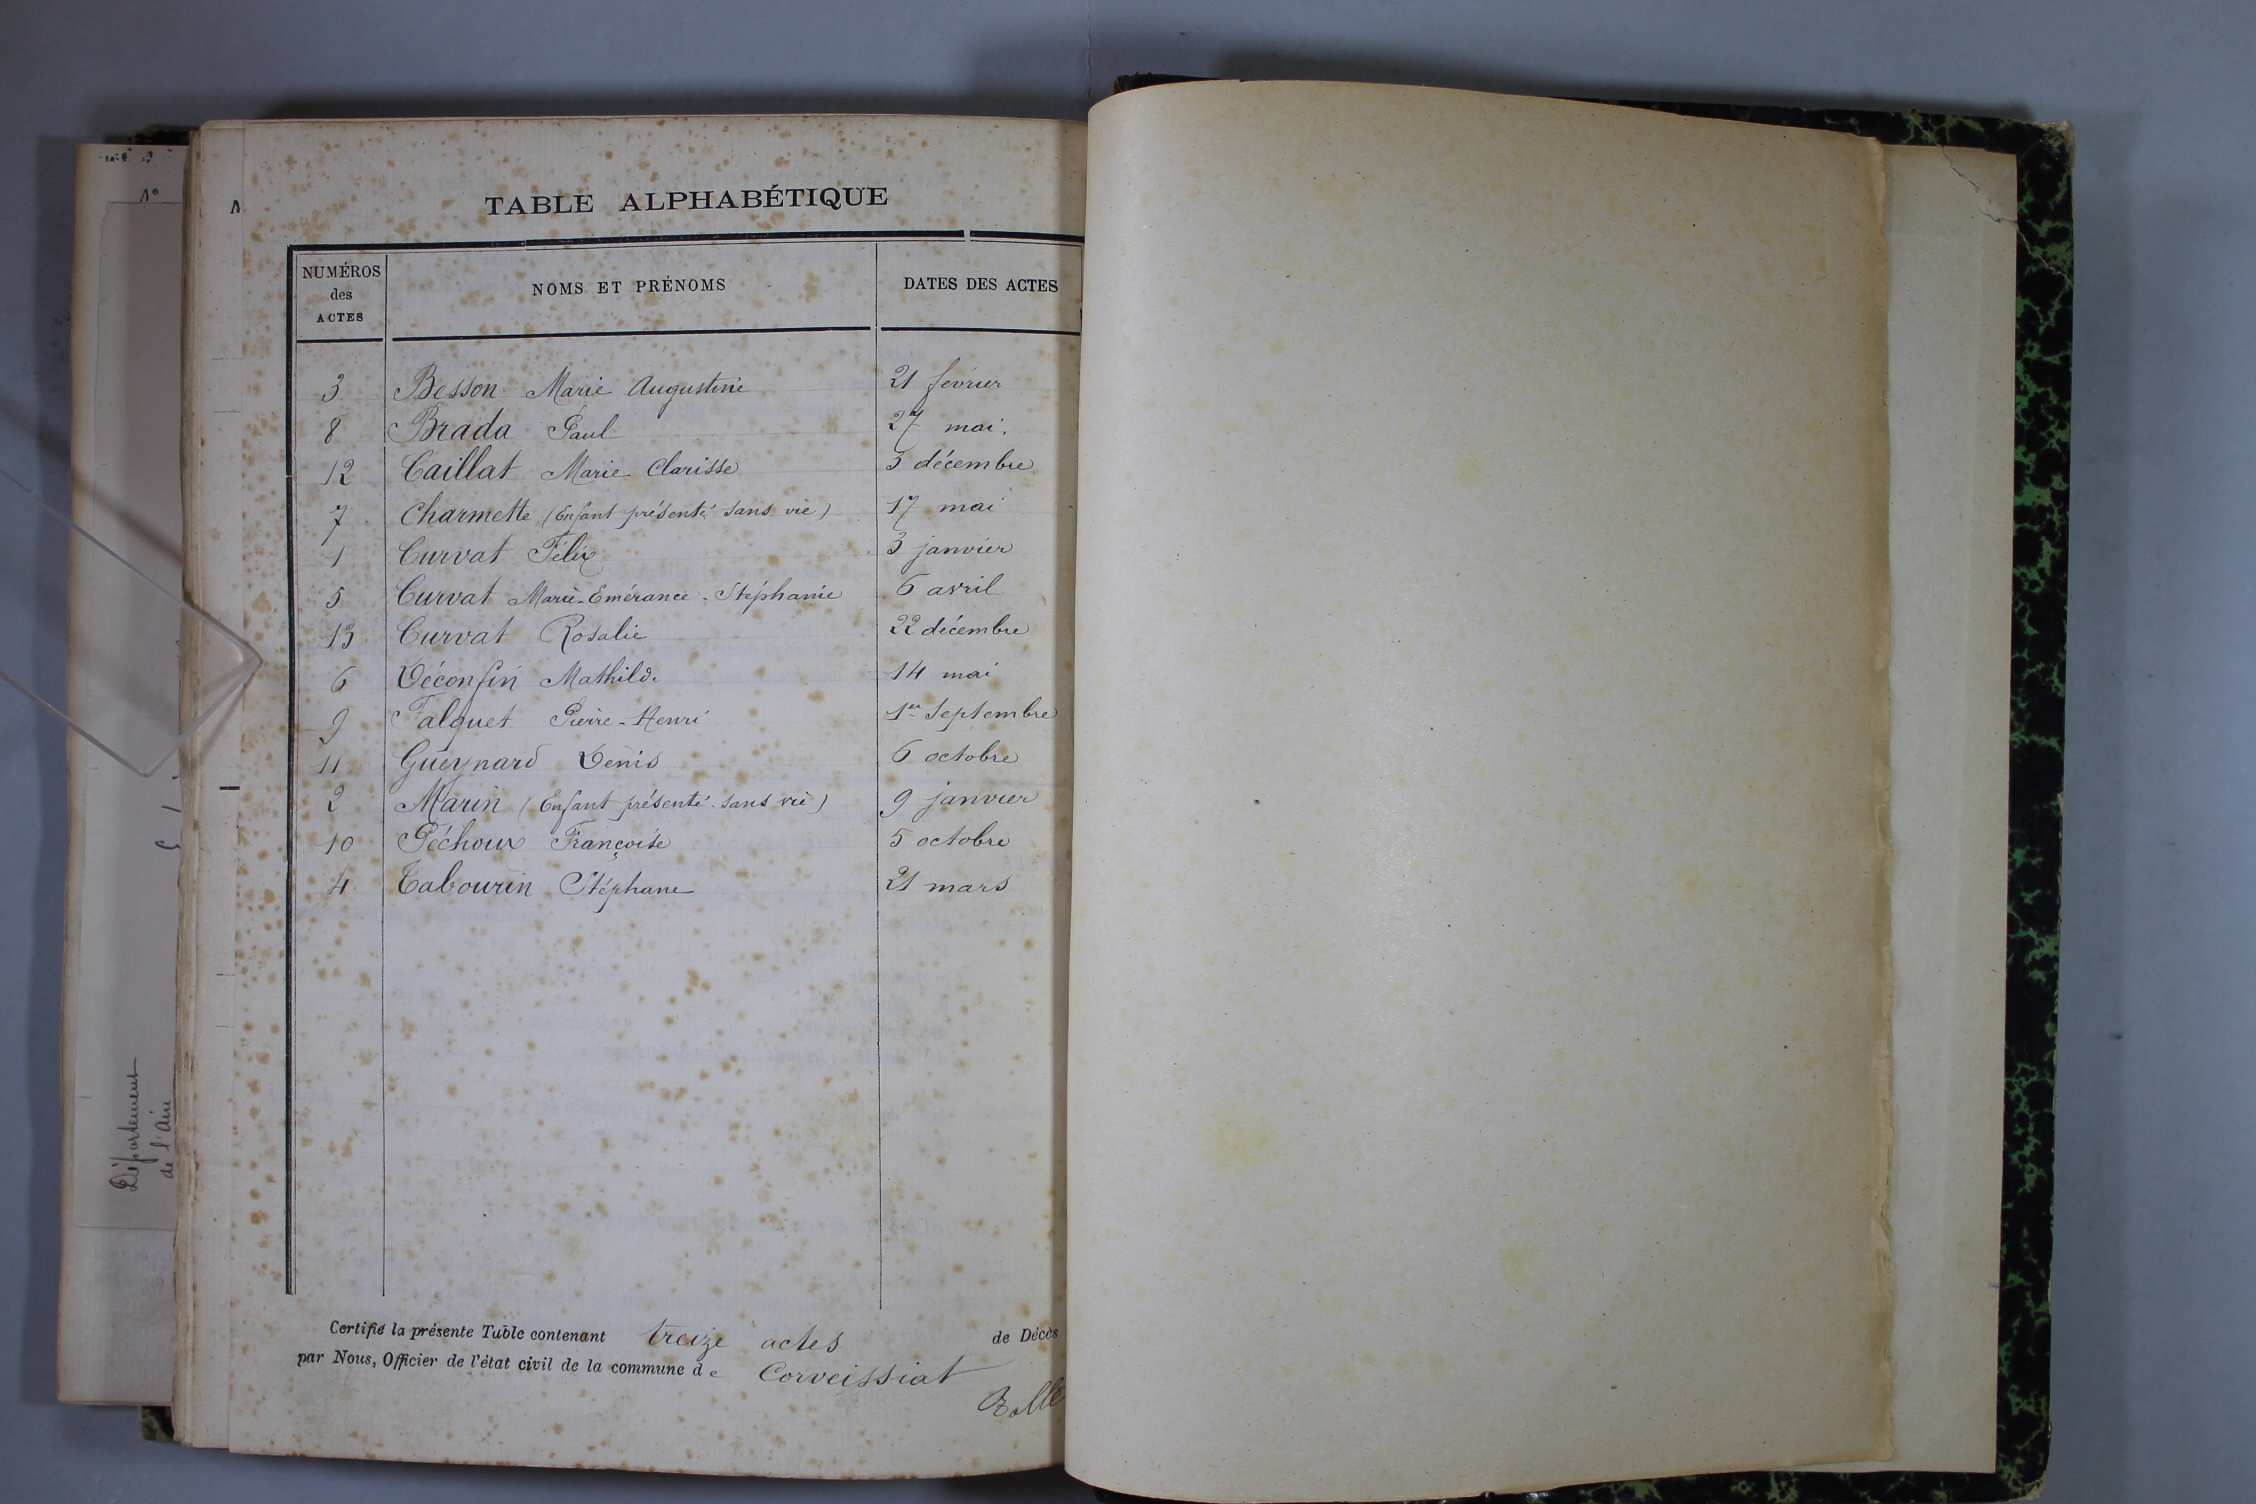 N°
TABLE ALPHABÉTIQUE
NUMÉROS des ACTES NOMS ET PRÉNOMS DATES DES ACTES
3 Besson Marie Augustine 21 février
8 Brada Paul 27 mai.
12 Caillat Marie Clarisse 3 décembre
7 Charmette (Enfant présenté sans vie) 17 mai
1 Curvat Félix 3 janvier
5 Curvat Marie-Emérance-Stéphanie 6 avril
13 Curvat Rosalie 22 décembre
6 Déconfin Mathilde 14 mai
9 Falquet Pierre-Henri 1er Septembre
11 Gueynard Denis 6 octobre
2 Marin (Enfant présenté sans vie) 9 janvier
10 Péchoux Françoise 5 octobre
4 Tabourin Stéphane 21 mars
Certifié la présente Table contenant treize actes de Décès
par Nous, Officier de l'état civil de la commune de Corveissiat
Département
de l'Ain